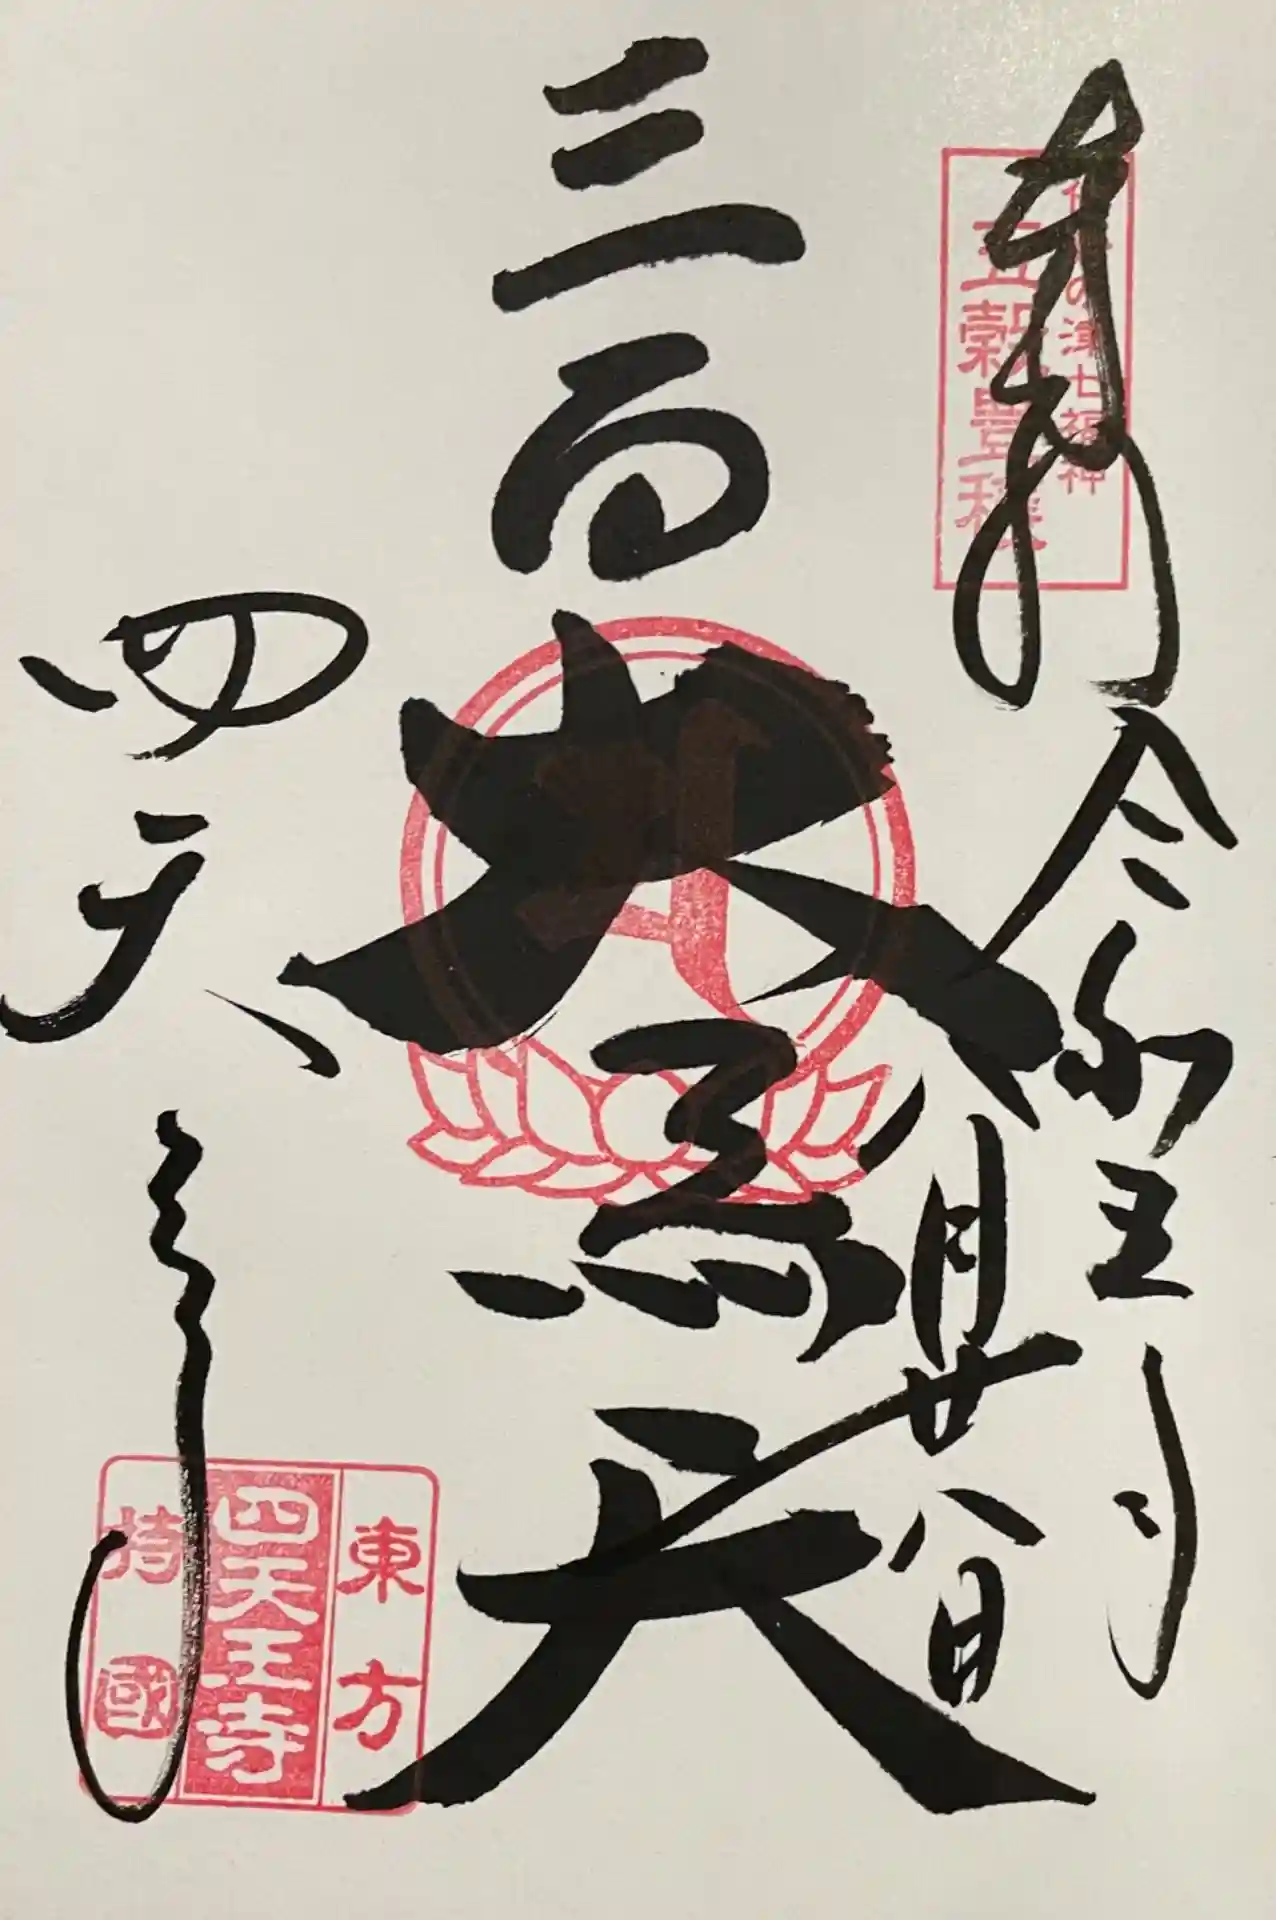 奉拝
伊勢の津七福神
五穀豊穣
令和五年
八月廿八日
三面大黒天
四天王寺
東方
四天王寺
持國